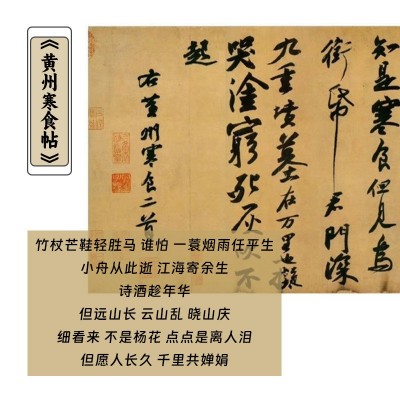 《黄州寒食帖》
知是寒食但見烏
銜帋君門深
九重墳墓在万里也擬
哭塗窮死灰吹不
起
右黄州寒食二首
竹杖芒鞋轻胜马 谁怕 一蓑烟雨任平生
小舟从此逝 江海寄余生
诗酒趁年华
但远山长 云山乱 晓山庆
细看来 不是杨花 点点是离人泪
但愿人长久 千里共婵娟